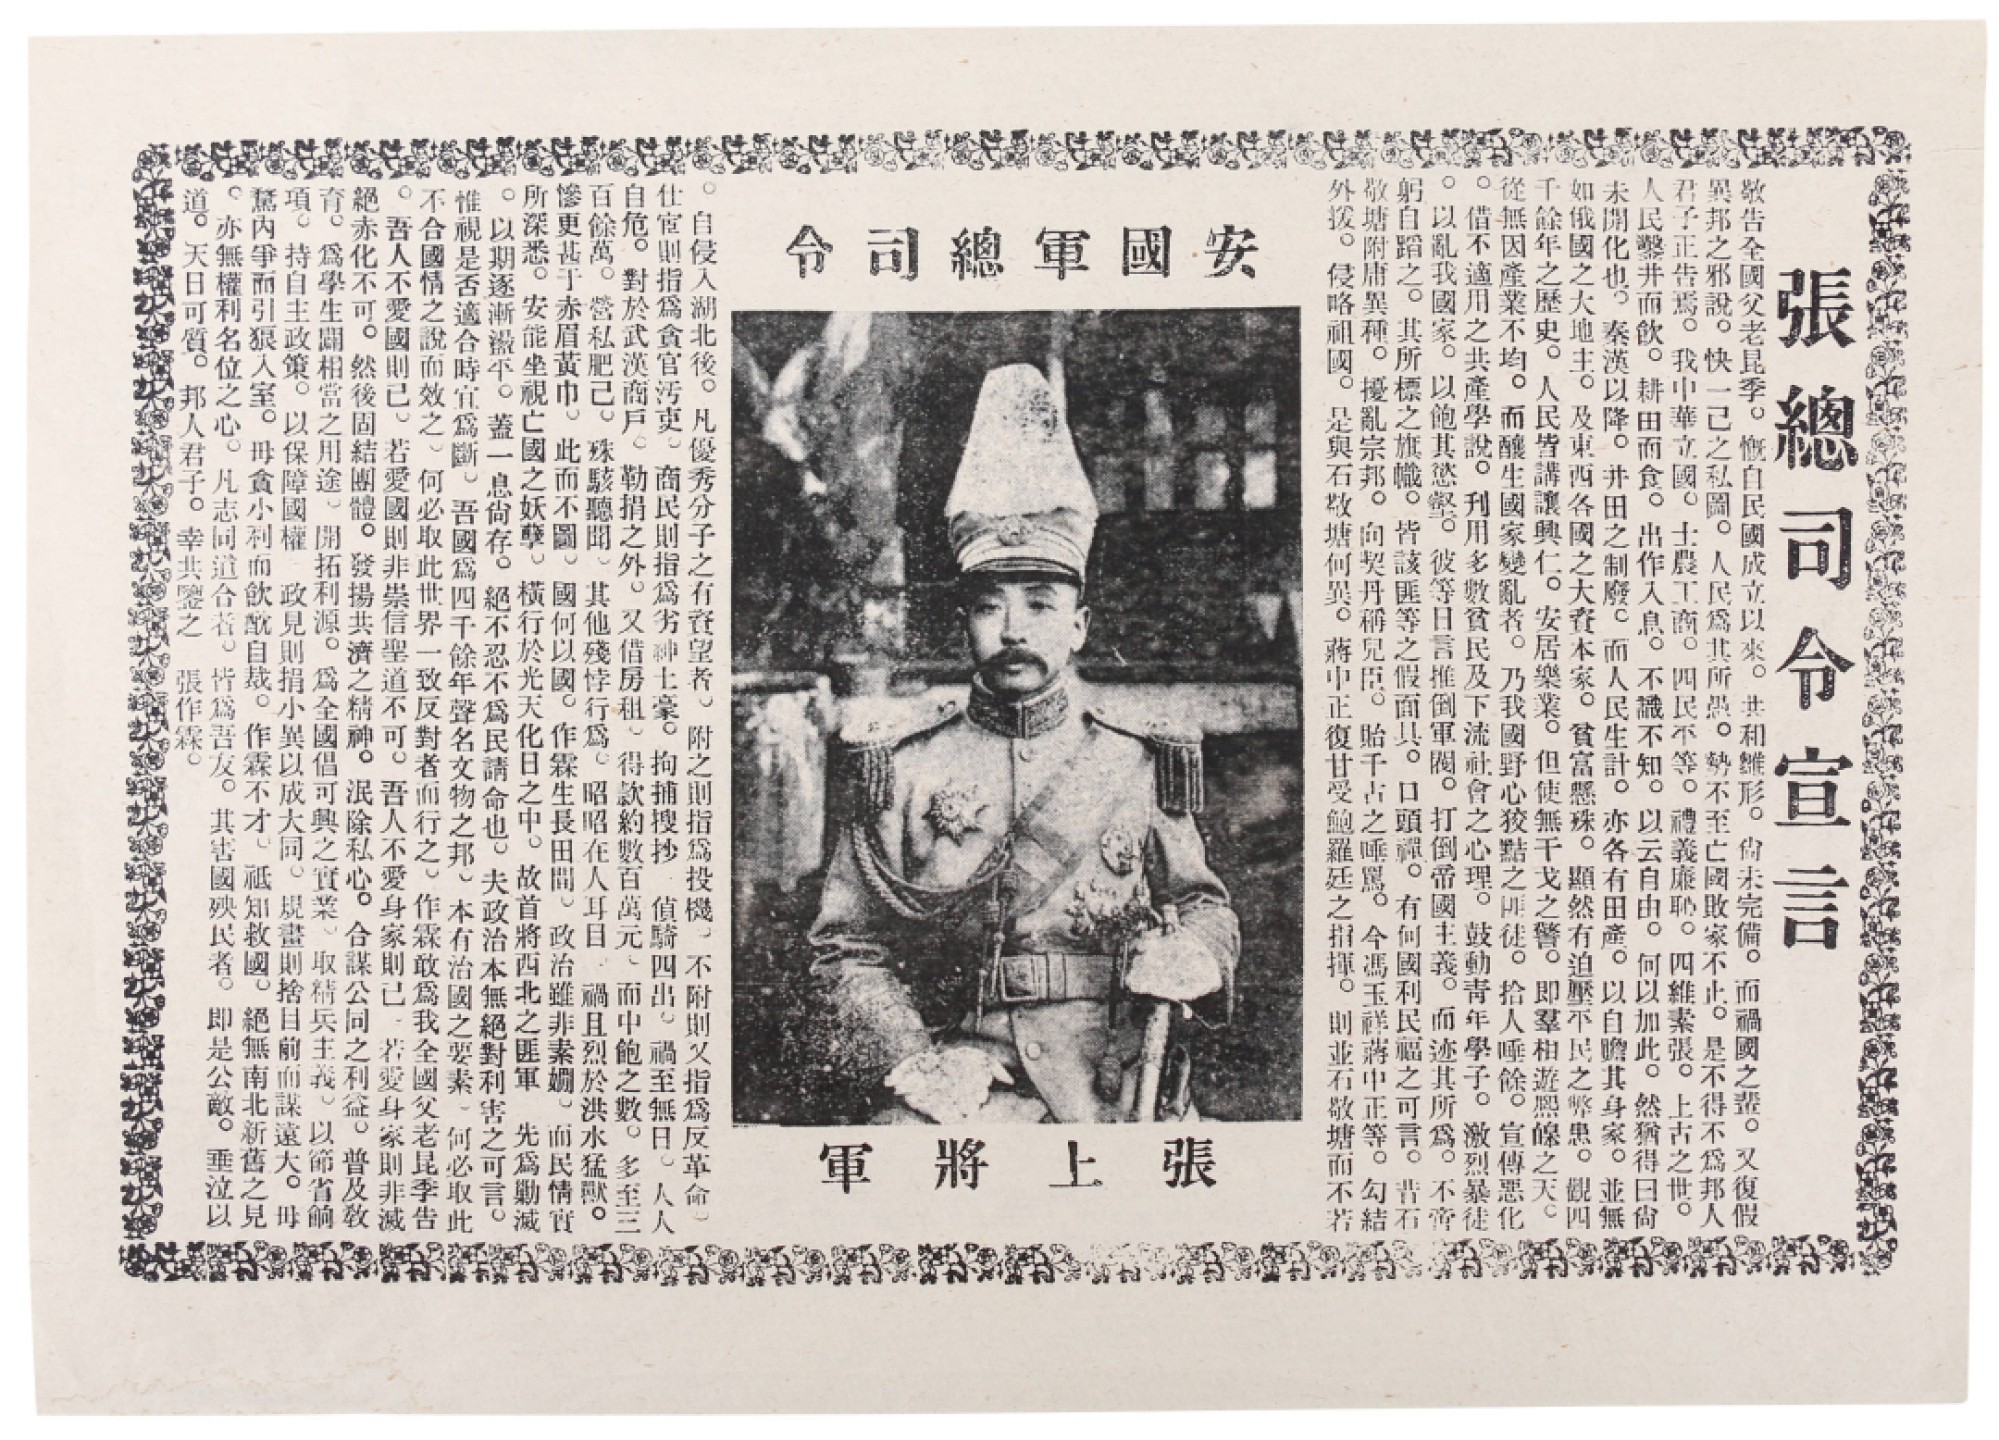 張總司令宣言
敬告全國父老昆季。慨自民國成立以來。共和雛形。尙未完備。而禍國之輩。又復假
異邦之邪說。快一己之私圖。人民爲其所愚。勢不至亡國敗家不止。是不得不爲邦人
君子正告焉。我中華立國。士農工商。四民平等。禮義廉恥。四維素張。上古之世。
人民鑿井而飲。耕田而食。出作入息。不識不知。以云自由。何以加此。然猶得曰尙
未開化也。秦漢以降。井田之制廢。而人民生計。亦各有田產。以自贍其身家。並無
如俄國之大地主。及東西各國之大資本家。貧富懸殊。顯然有迫壓平民之弊患。觀四
千餘年之歷史。人民皆講讓興仁。安居樂業。但使無干戈之警。即羣相遊熙皞之天。
從無因產業不均。而釀生國家變亂者。乃我國野心狡黠之匪徒。拾人唾餘。宣傳惡化
。借不適用之共產學說。利用多數貧民及下流社會之心理。鼓動靑年學子。激烈暴徒
。以亂我國家。以飽其慾壑。彼等日言推倒軍閥。打倒帝國主義。而迹其所爲。不啻
躬自蹈之。其所標之旗幟。皆該匪等之假面具。口頭禪。有何國利民福之可言。昔石
敬塘附庸異種。擾亂宗邦。向契丹稱兒臣。貽千古之唾罵。今馮玉祥蔣中正等。勾結
外援。侵略祖國。是與石敬塘何異。蔣中正復甘受鮑羅廷之指揮。則並石敬塘而不若
安國軍總司令
張上將軍
。自侵入湖北後。凡優秀分子之有資望者。附之則指爲投機。不附則又指爲反革命。
仕宦則指爲貪官汚吏。商民則指爲劣紳土豪。拘捕搜抄 偵騎四出。禍至無日。人人
自危。對於武漢商戶。勒捐之外。又借房租。得款約數百萬元。而中飽之數。多至三
百餘萬。營私肥己。殊駭聽聞。其他殘悖行爲。昭昭在人耳目。禍且烈於洪水猛獸。
慘更甚于赤眉黃巾。此而不圖。國何以國。作霖生長田間。政治雖非素嫻。而民情實
所深悉。安能坐視亡國之妖孽。橫行於光天化日之中。故首將西北之匪軍 先爲勦滅
。以期逐漸盪平。蓋一息尙存。絕不忍不爲民請命也。夫政治本無絕對利害之可言。
惟視是否適合時宜爲斷。吾國爲四千餘年聲名文物之邦。本有治國之要素。何必取此
不合國情之說而效之。何必取此世界一致反對者而行之。作霖敢爲我全國父老昆季告
。吾人不愛國則已。若愛國則非崇信聖道不可。吾人不愛身家則已。若愛身家則非滅
絕赤化不可。然後固結團體。發揚共濟之精神。泯除私心。合謀公同之利益。普及敎
育。爲學生闢相當之用途。開拓利源。爲全國倡可興之實業。取精兵主義。以節省餉
項。持自主政策。以保障國權 政見則捐小異以成大同。規畫則捨目前而謀遠大。毋
鶩內爭而引狼入室。毋貪小利而飲酖自戕。作霖不才。祇知救國。絕無南北新舊之見
。亦無權利名位之心。凡志同道合者。皆爲吾友。其害國殃民者。即是公敵。垂泣以
道。天日可質。邦人君子。幸共鑒之 張作霖。